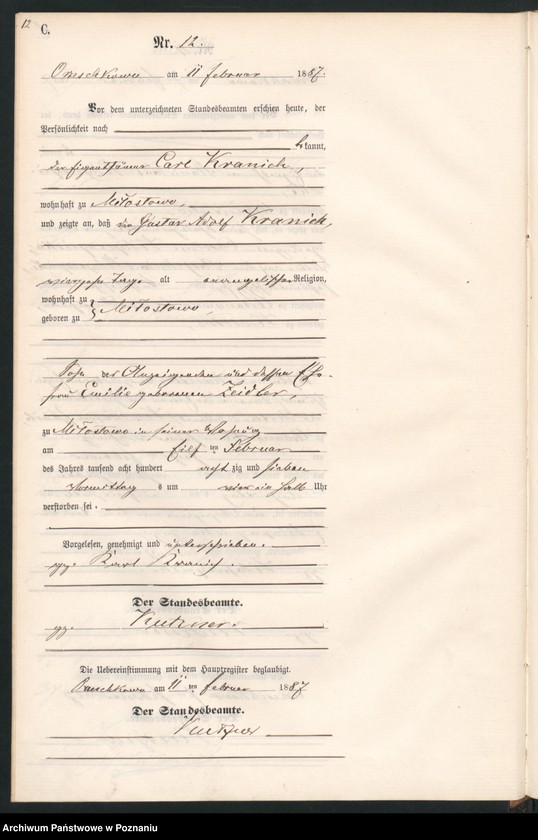 12
C.
Nr. 12.
am 11 Februar 1887.
Vor dem unterzeichneten Standesbeamten erschien heute, der
Persönlichkeit nach
bekannt,
der Eigenthümer Carl Kranich,
wohnhaft zu Miłostowo,
und zeigte an, daß der Gustav Adolf Kranich,
vierzehn Tage alt evangelischer Religion,
wohnhaft zu
geboren zu } Miłostowo,
Sohn des Anzeigenden und dessen Ehe-
frau Emilie geborenen Zeidler,
zu Miłostowo in seiner Wohnung
am Eilf ten Februar
des Jahres tausend acht hundert acht zig und sieben
Vormittag s um ein halb Uhr
verstorben sei.
Vorgelesen, genehmigt und unterschrieben.
gez. Karl Kranich.
Der Standesbeamte.
gez. Kutzner.
Die Uebereinstimmung mit dem Hauptregister beglaubigt.
am 11 ten Februar 1887
Der Standesbeamte.
Kutzner
Archiwum Państwowe w Poznaniu